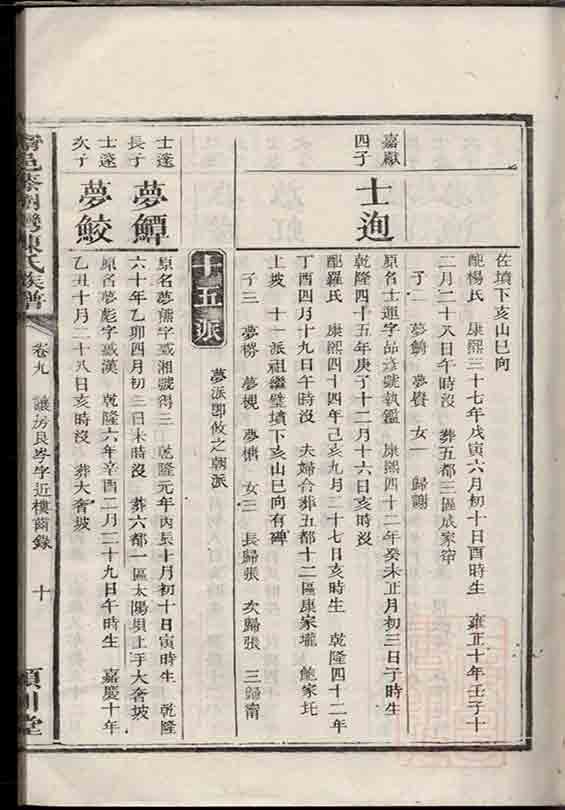 佐墳下亥山巳向
配楊氏 康熙三十七年戊寅六月初十日酉時生 雍正十年壬子十
二月二十八日午時沒 葬五都三區成家
子二 夢 夢賚 女一 歸謝
嘉獻
四子
士迿
原名士運字品 號執鑑 康熙四十二年癸未正月初三日子時生
乾隆四十五年庚子十二月十六日亥時沒
配羅氏 康熙四十四年己亥九月二十七日亥時生 乾隆四十二年
丁酉四月十九日午時沒 夫婦合葬五都十二區康家壠 鮑家坵
上坡 十一派祖繼墳下亥山巳向有碑
子三 夢楞 夢槻 夢樀 女三 長歸張 次歸張 三歸甯
十五派
夢派卽攸之朝派
士達
長子
夢鱏
原名夢熊字 湘號得三 乾隆元年丙辰十月初十日寅時生 乾隆
六十年乙卯四月初三日未時沒 葬六都一區太陽垻上手大耆坡
士達
次子
夢鮫
原名夢彪字 漢 乾隆六年辛酉二月二十九日午時生 嘉慶十年
乙丑十月二十八日亥時沒 葬大耆坡
陳氏族譜
卷九
讓房良岑字近樓齒錄
十
潁川堂